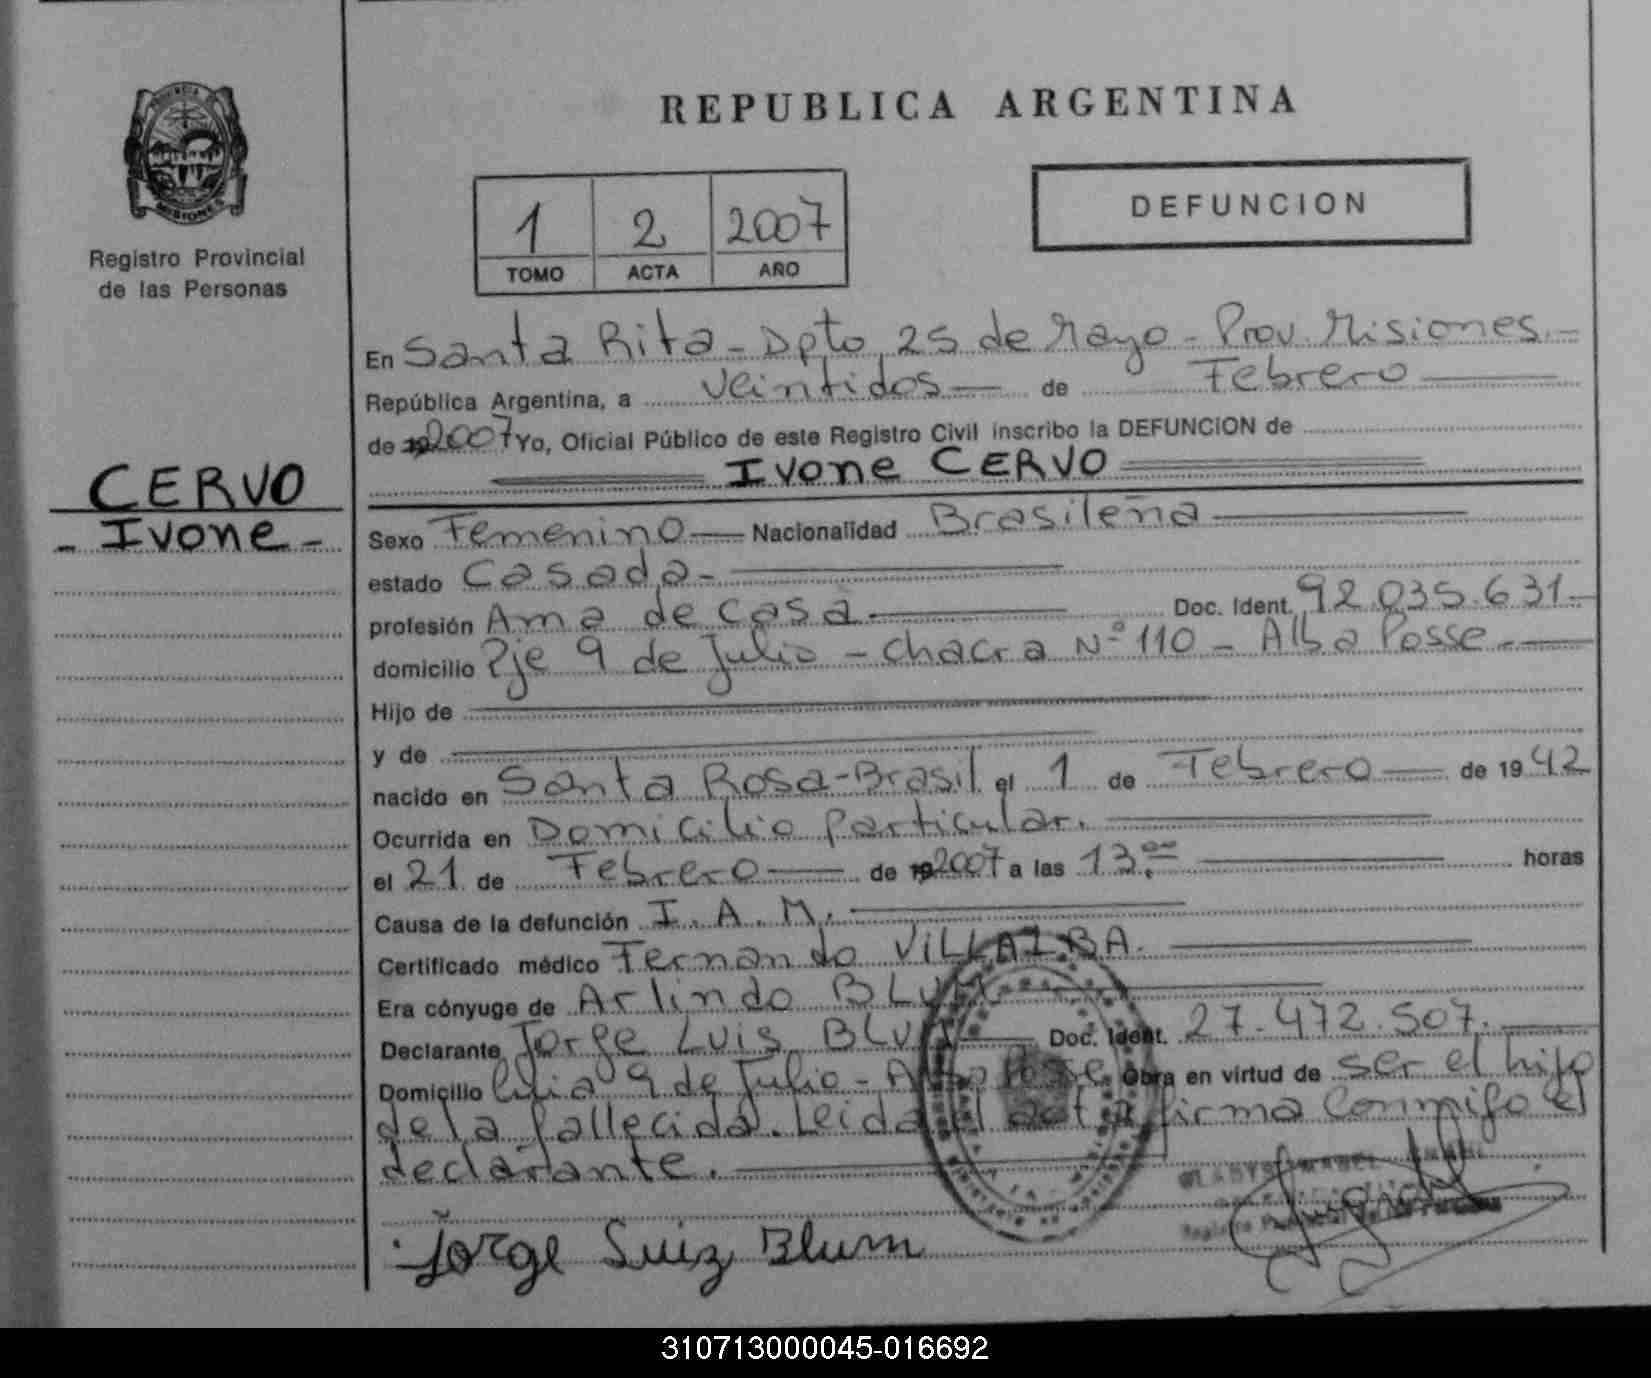 PROVINCIA DE
MISIONES
Registro Provincial
de las Personas
CERVO
- Ivone -
REPUBLICA ARGENTINA
1 2 2007
TOMO ACTA AÑO
DEFUNCION
En Santa Rita - Dpto 25 de Mayo - Prov. Misiones. -
República Argentina, a veintidos de Febrero
de 192007 Yo, Oficial Público de este Registro Civil inscribo la DEFUNCION de
Ivone CERVO
Sexo Femenino Nacionalidad Brasileña
estado Casada. -
profesión Ama de casa. Doc. Ident. 92.035.631. -
domicilio Pje 9 de Julio - chacra N° 110 - Alba Posse. -
Hijo de
y de
nacido en Santa Rosa - Brasil el 1 de Febrero de 1942
Ocurrida en Domicilio particular.
el 21 de Febrero de 192007 a las 13:00 horas
Causa de la defunción I. A. M.
Certificado médico Fernando VILLALBA.
Era cónyuge de Arlindo BLUM
Declarante Jorge Luis BLUM Doc. Ident. 27.472.507.
Domicilio 9 de Julio - Alba Posse. Obra en virtud de ser el hijo
de la fallecida. Leida el acta firma conmigo el
declarante.
Jorge Luiz Blum
310713000045-016692